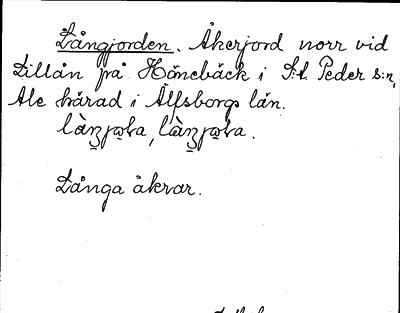 Långjorden. Åkerjord norr vid
Lillån på Hönebäck i S:t Peder s:n,
Ale härad i Älfsborgs län.
Långa åkrar.